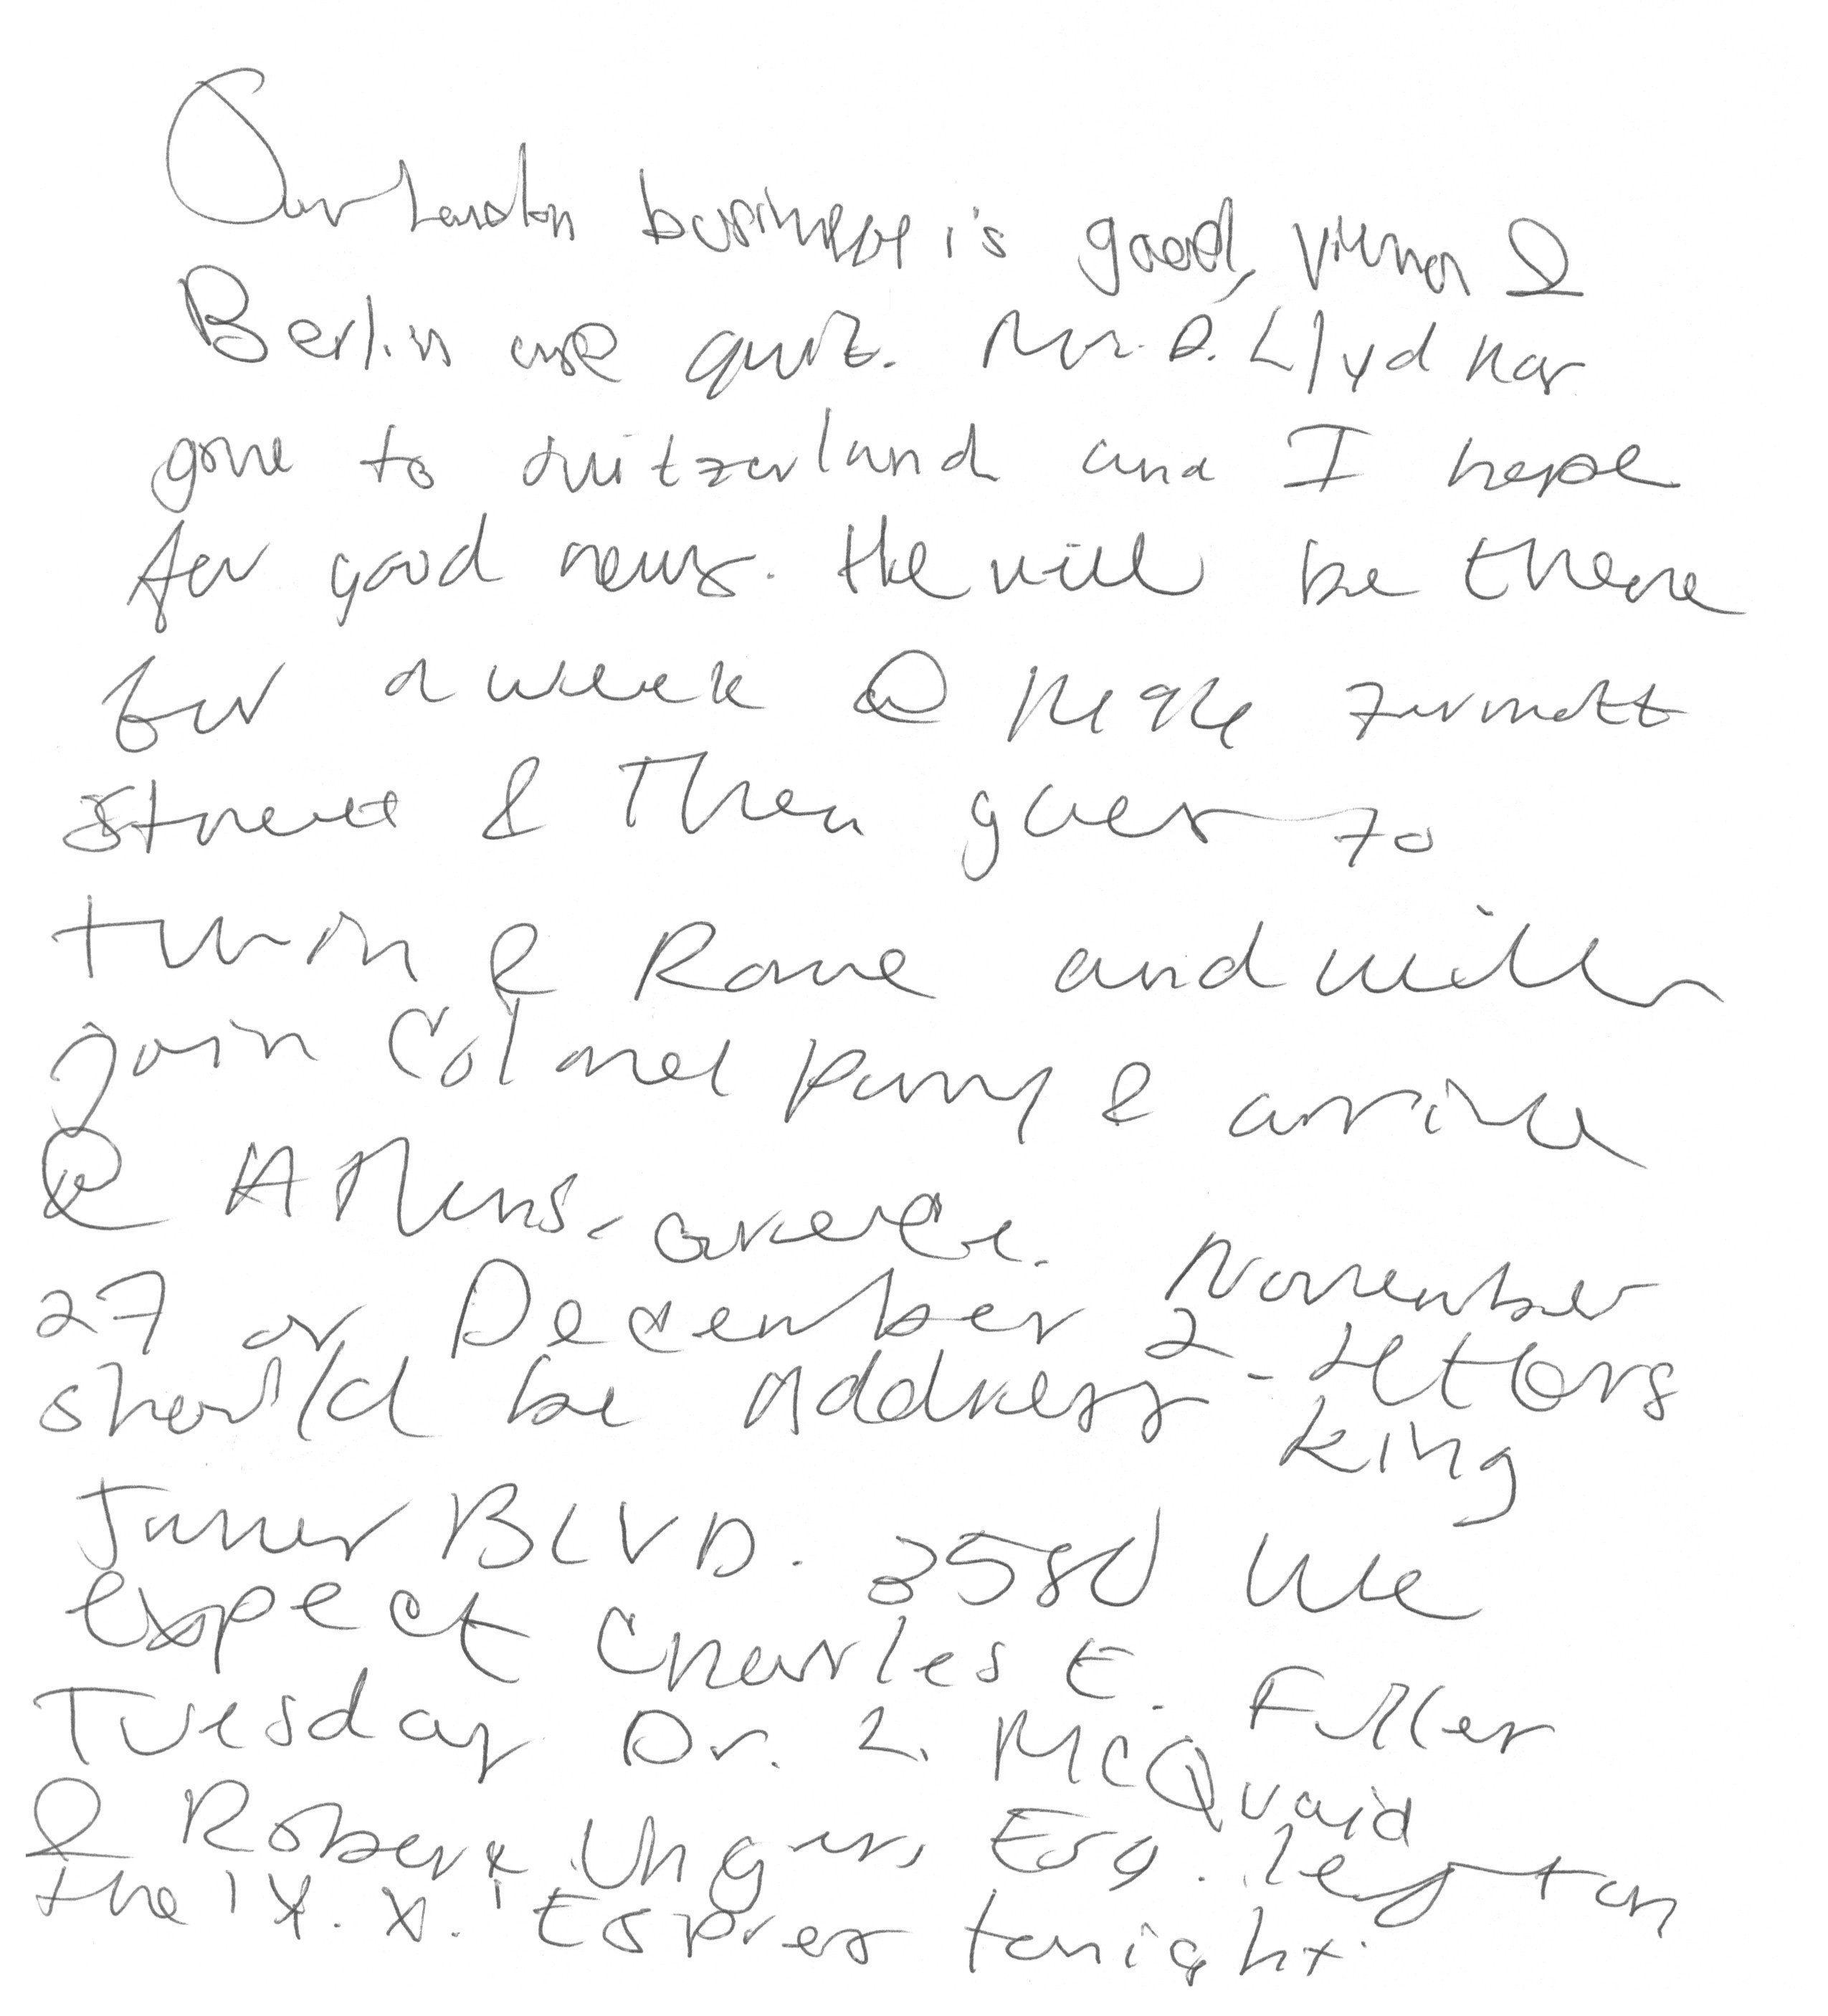 Our London business is good, Vienna &
Berlin are quiet. Mr. D. Lloyd has
gone to Switzerland and I hope
for good news. He will be there
for a week @ 1496 Zermott
Street & Then goes to
Turin & Rome and will
join Colonel Parry & arrive
@ Athens, Greece. November
27 or December 2 - letters
should be address King
James BLVD. 3580 We
expect Charles E. Fuller
Tuesday Dr. L. McQuaid
& Robert Unger, Esq. left on
the 'Y.X.' Espress tonight.